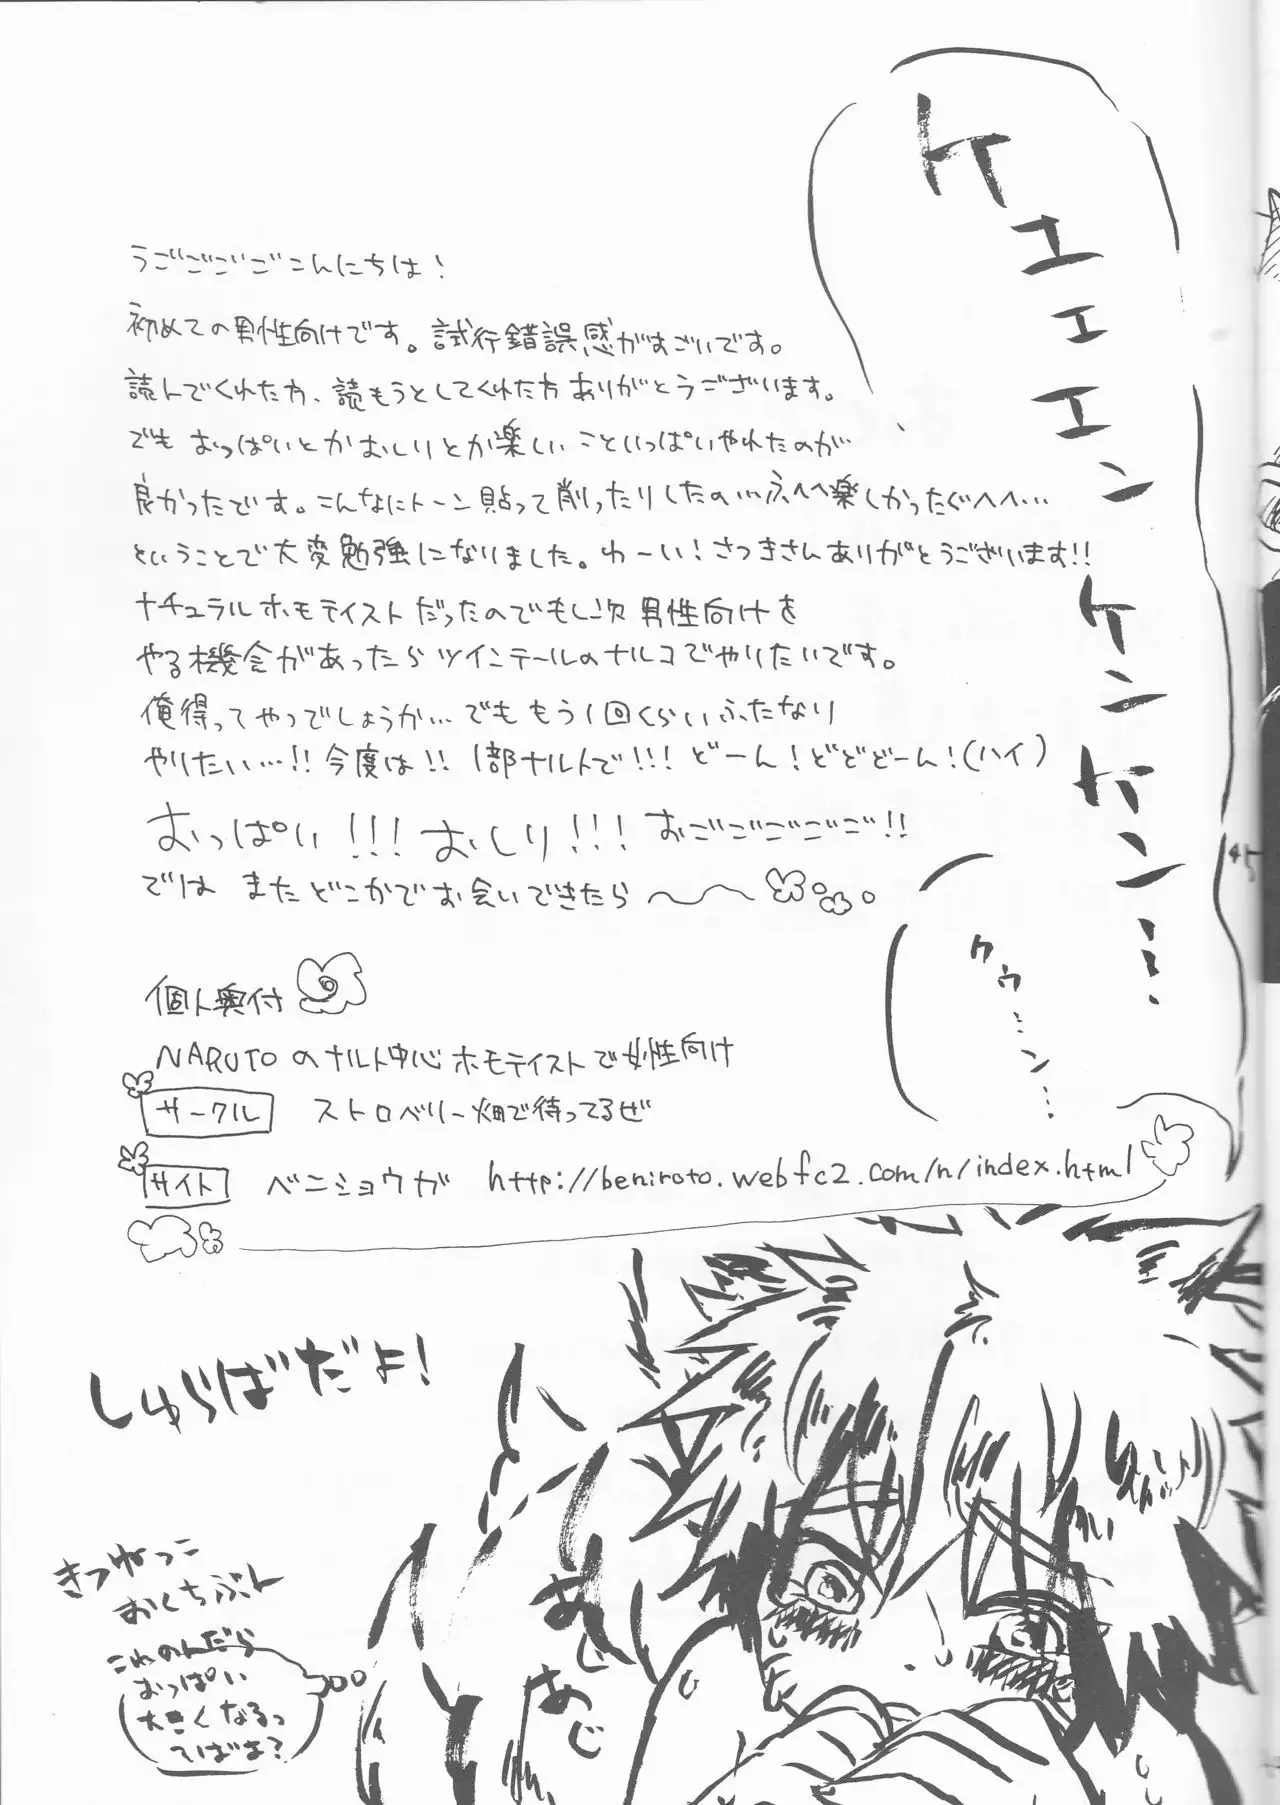 ケエエエンケンケン…
クゥ…ン…
うごごごごこんにちは!
初めての男性向けです。試行錯誤感がすごいです。
読んでくれた方、読もうとしてくれた方ありがとうございます。
でも おっぱいとかおしりとか楽しいこといっぱいやれたのが
良かったです。こんなにトーン貼って削ったりしたの…ふへへ楽しかったぐへへ…
ということで大変勉強になりました。わーい!さつきさんありがとうございます!!
ナチュラルホモテイストだったのでもし次男性向けを
やる機会があったらツインテールのナルコでやりたいです。
俺得ってやつでしょうか…でももう1回くらいふたなり
やりたい…!!今度は!!1部ナルトで!!!どーん!どどどーん!(ハイ)
おっぱい!!!おしり!!!おごごごごご!!
では またどこかでお会いできたら
個人奥付
NARUTOのナルト中心ホモテイストで女性向け
サークル ストロベリー畑で待ってるぜ
サイト ベニショウガ http://beniroto.web.fc2.com/n/index.html
しゅらばだよ!
きつねっこ
おくちぷん
これのんだら
おっぱい
大きくなるっ
てばよ?
あじ
あじ